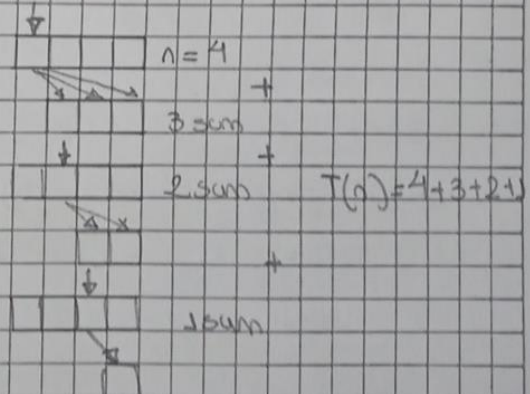 n = 4
+
3 sum
+
2 sum
T(n) = 4+3+2+1
+
1 sum